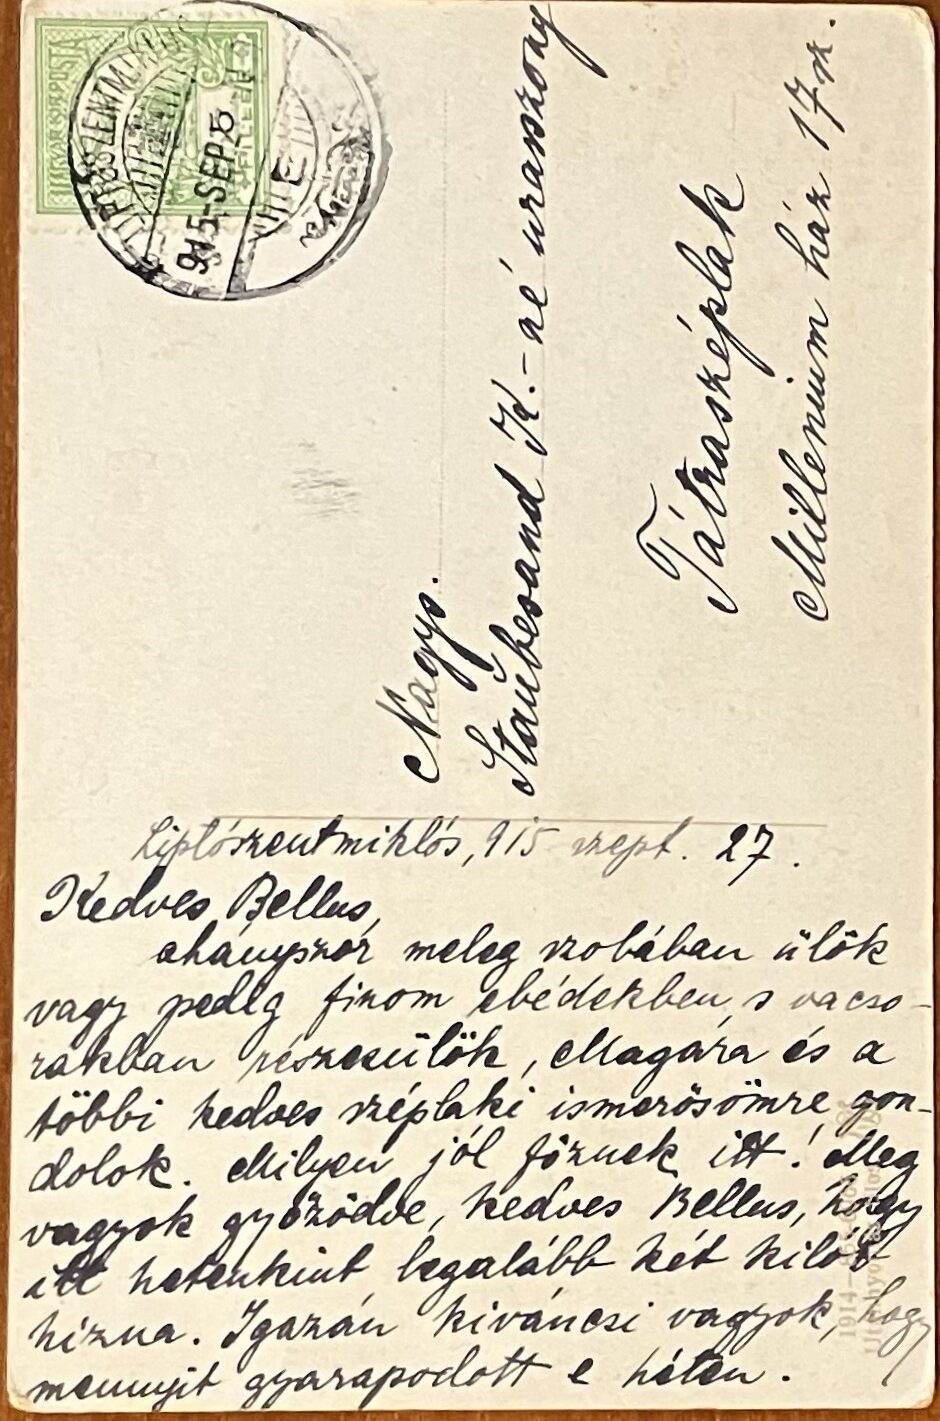 MAGYAR KIR. POSTA
FILLÉR
LIPTÓSZENTMIKLÓS
915 SEP
Nagys.
Staubesand K.-né úrasszony
Tátraszéplak
Millenium ház 17 sz.
Liptószentmiklós, 915 szept. 27.
Kedves Bellus,
ahányszor meleg szobában ülök
vagy pedig finom ebédekben, s vacso-
rákban részesülök, Magára és a
többi kedves széplaki ismerősömre gon-
dolok. Milyen jól főznek itt! Meg
vagyok győződve, kedves Bellus, hogy
itt hetenkint legalább két kilót
hízna. Igazán kiváncsi vagyok, hogy
mennyit gyarapodott e héten.